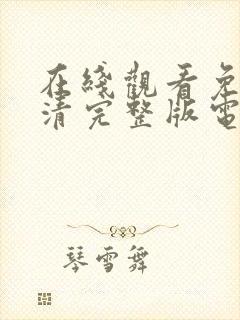 在綫觀看免
清完整版電
琴雪舞